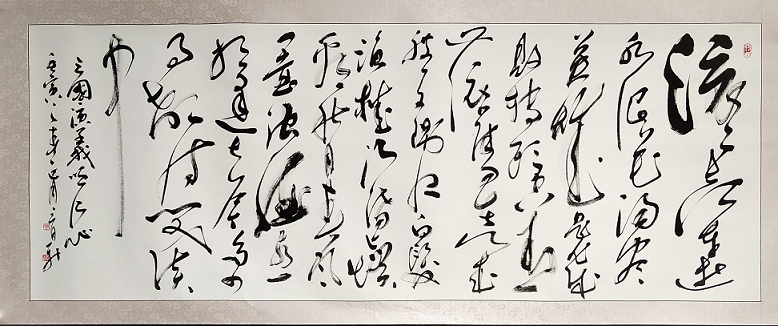 滚滚长江东逝
水浪花淘尽
英雄是非成
败转头空青
山依旧在几度
夕阳红白发
渔樵江渚上惯
看秋月春风
一壶浊酒喜
相逢古今多少
事都付笑谈
中
三國演義临江仙